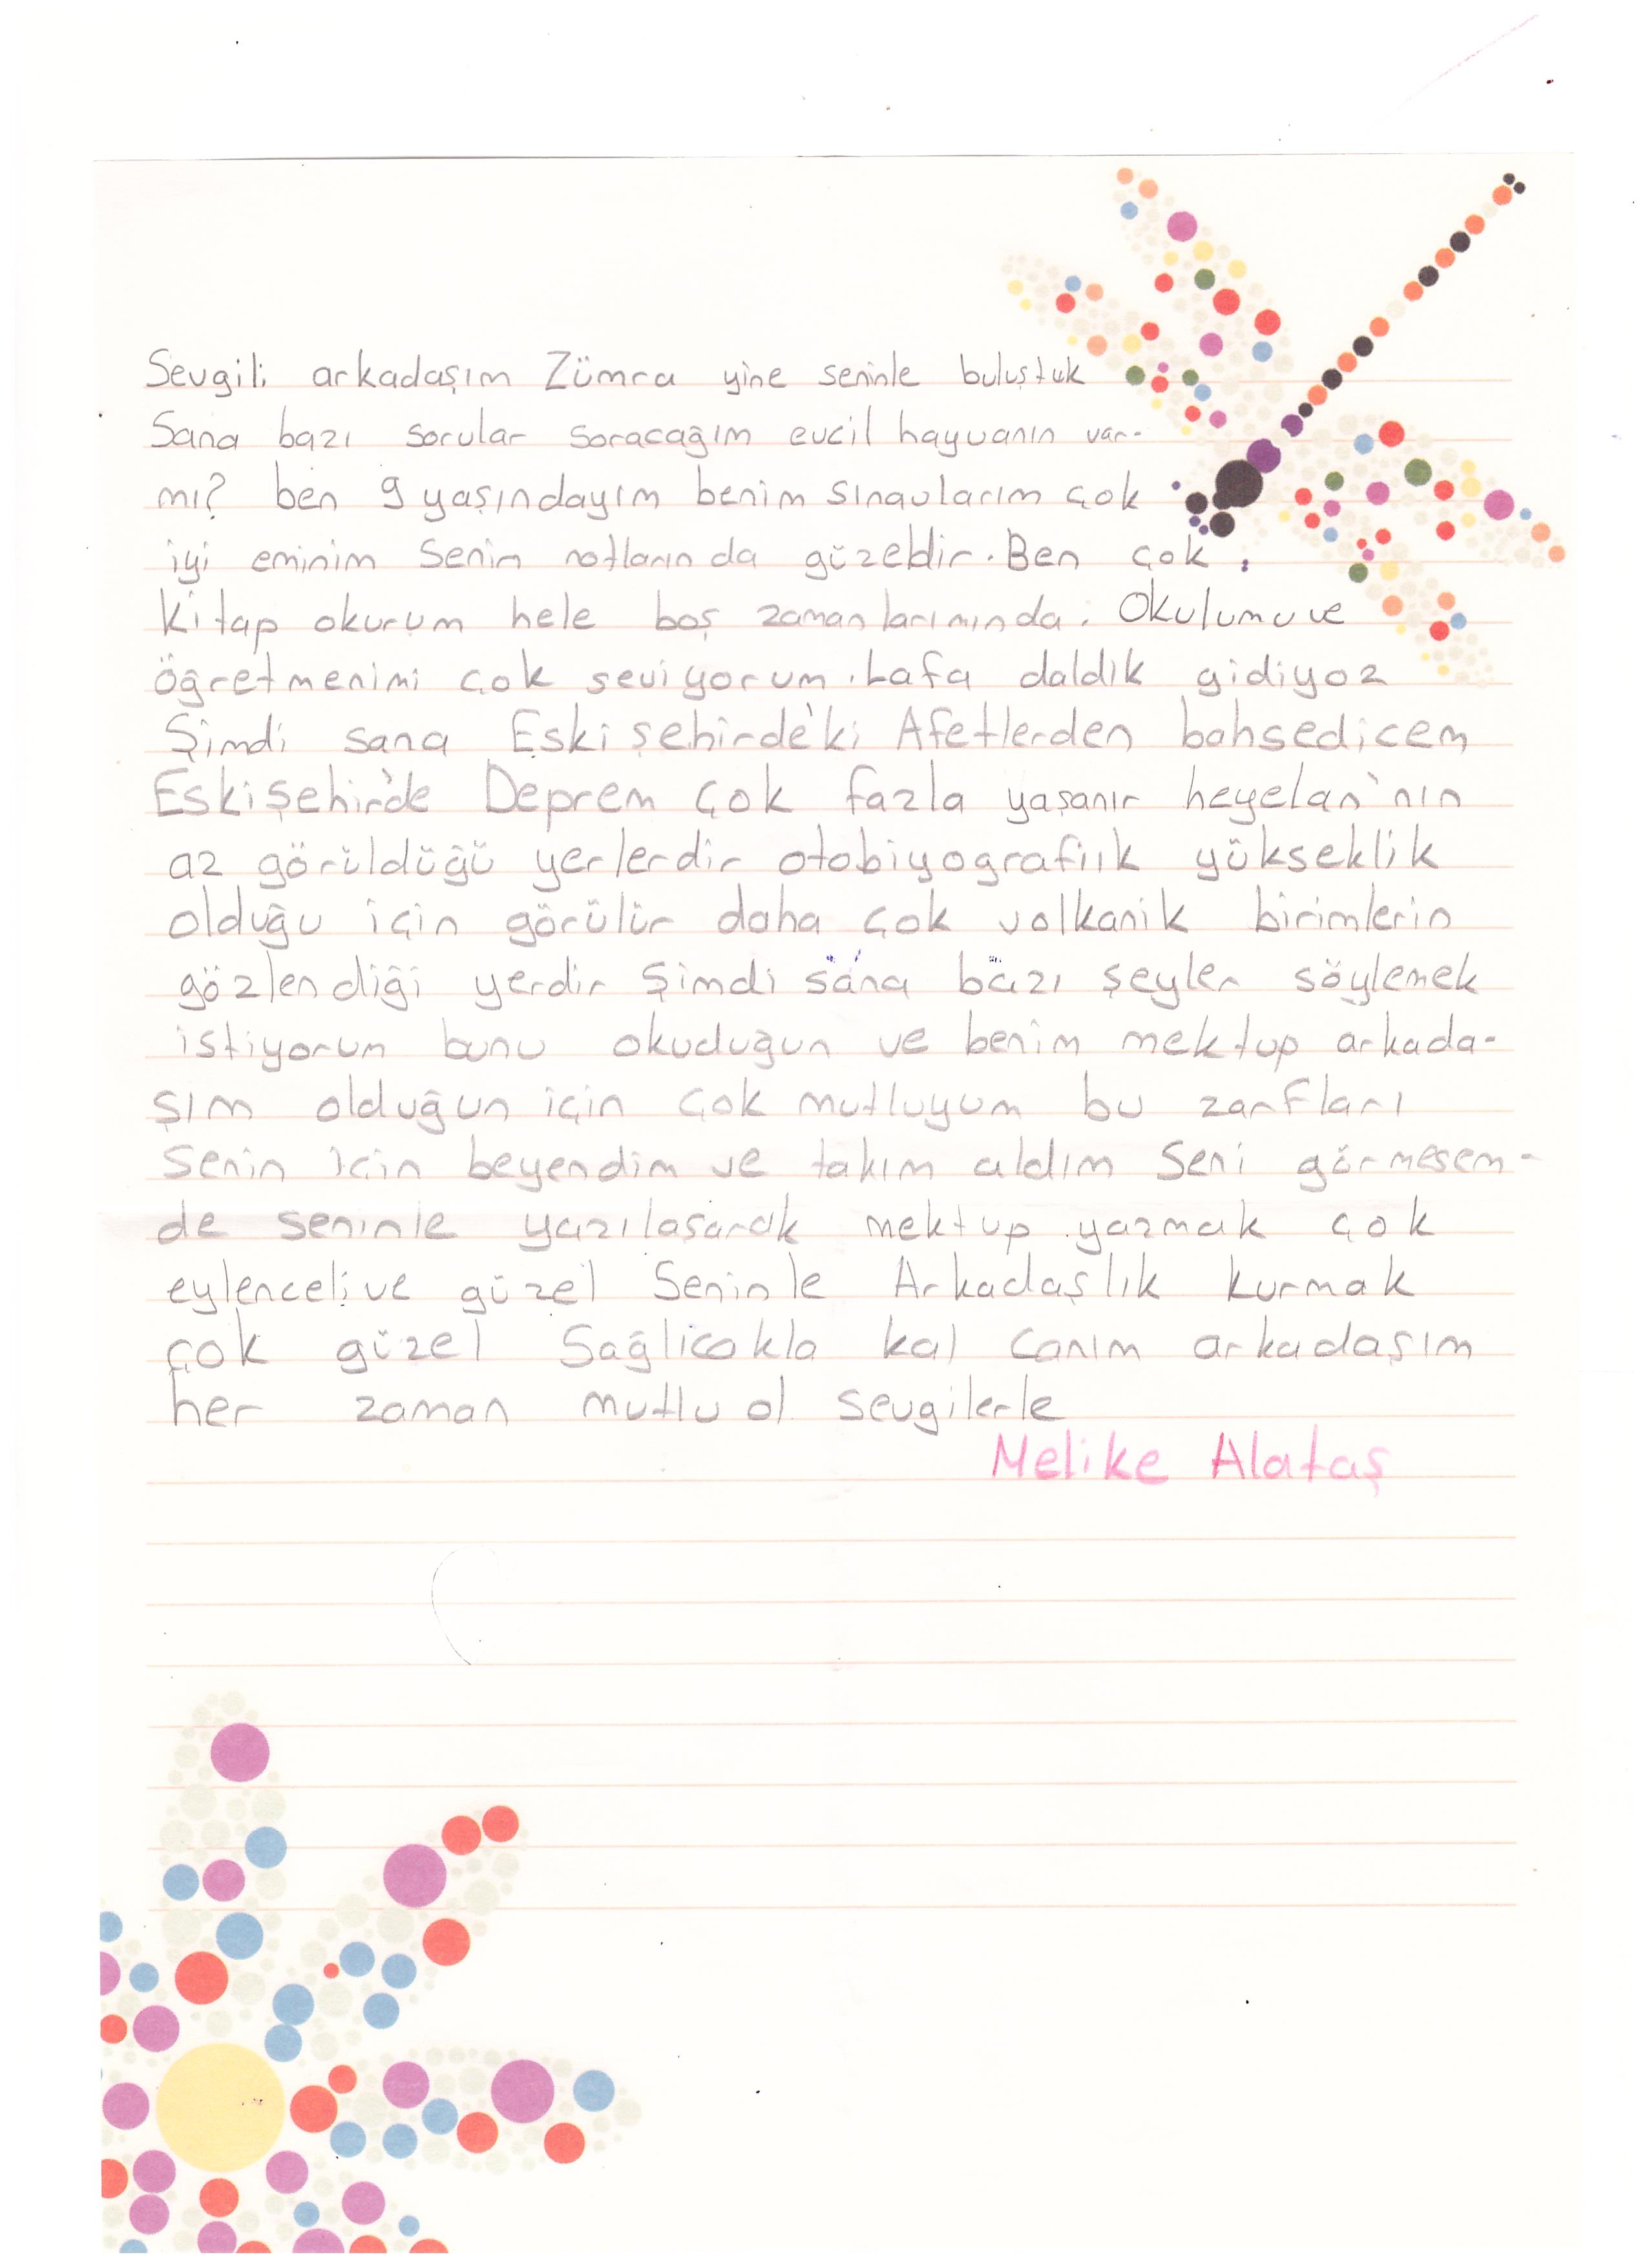 Sevgili arkadaşım Zümra yine seninle buluştuk
Sana bazı sorular soracağım evcil hayvanın var-
mı? ben 9 yaşındayım benim sınavlarım çok
iyi eminim senin notların da güzeldir. Ben çok
kitap okurum hele boş zamanlarımında. Okulumu ve
öğretmenimi çok seviyorum. Lafa daldık gidiyoz
Şimdi sana Eskişehirde'ki Afetlerden bahsedicem
Eskişehir'de Deprem çok fazla yaşanır heyelan'nın
az görüldüğü yerlerdir otobiyografiık yükseklik
olduğu için görülür daha çok volkanik birimlerin
gözlendiği yerdir Şimdi sana bazı şeyler söylemek
istiyorum bunu okuduğun ve benim mektup arkada-
şım olduğun için çok mutluyum bu zarfları
senin için beyendim ve takım aldım Seni görmesem-
de seninle yazılaşarak mektup yazmak çok
eylenceli ve güzel Seninle Arkadaşlık kurmak
çok güzel Sağlicakla kal canım arkadaşım
her zaman mutlu ol sevgilerle
Melike Alataş